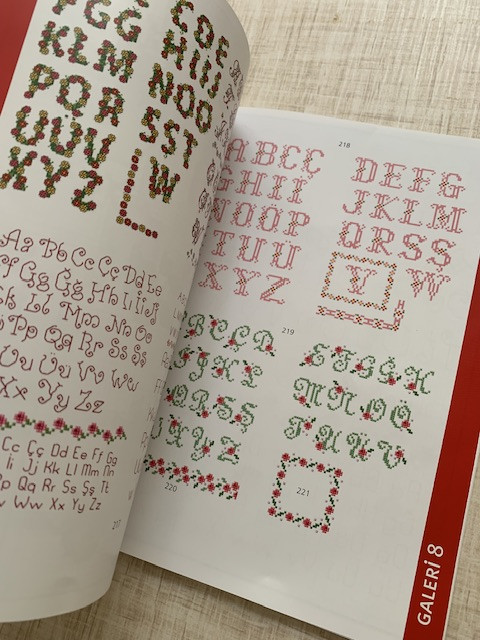 F G G
C D E
K L M
H I J
P Q R
N O Ö
U Ü V
S Ş T
X Y Ç
W
Aa Bb Cc Çç Dd Ee
Ff Gg Ğğ Hh Iı İi Jj
Kk Ll Mm Nn Oo
Pp Qq Rr Ss Şş
Uu Üü Vv Ww
Xx Yy Zz
Cc Çç Dd Ee Ff Gg
Ii Jj Kk Ll Mm Nn
Pp Qq Rr Ss Şş Tt
Vv Ww Xx Yy Zz
217
218
A B C Ç
D E F G
G H I İ
J K L M
N O Ö P
Q R S Ş
T U Ü
V W
X Y Z
219
B C Ç D
E F G Ğ H
İ J K P
M N O Ö
Q R S Ş
T U Ü V
X Y Z
220
221
GALERİ 8